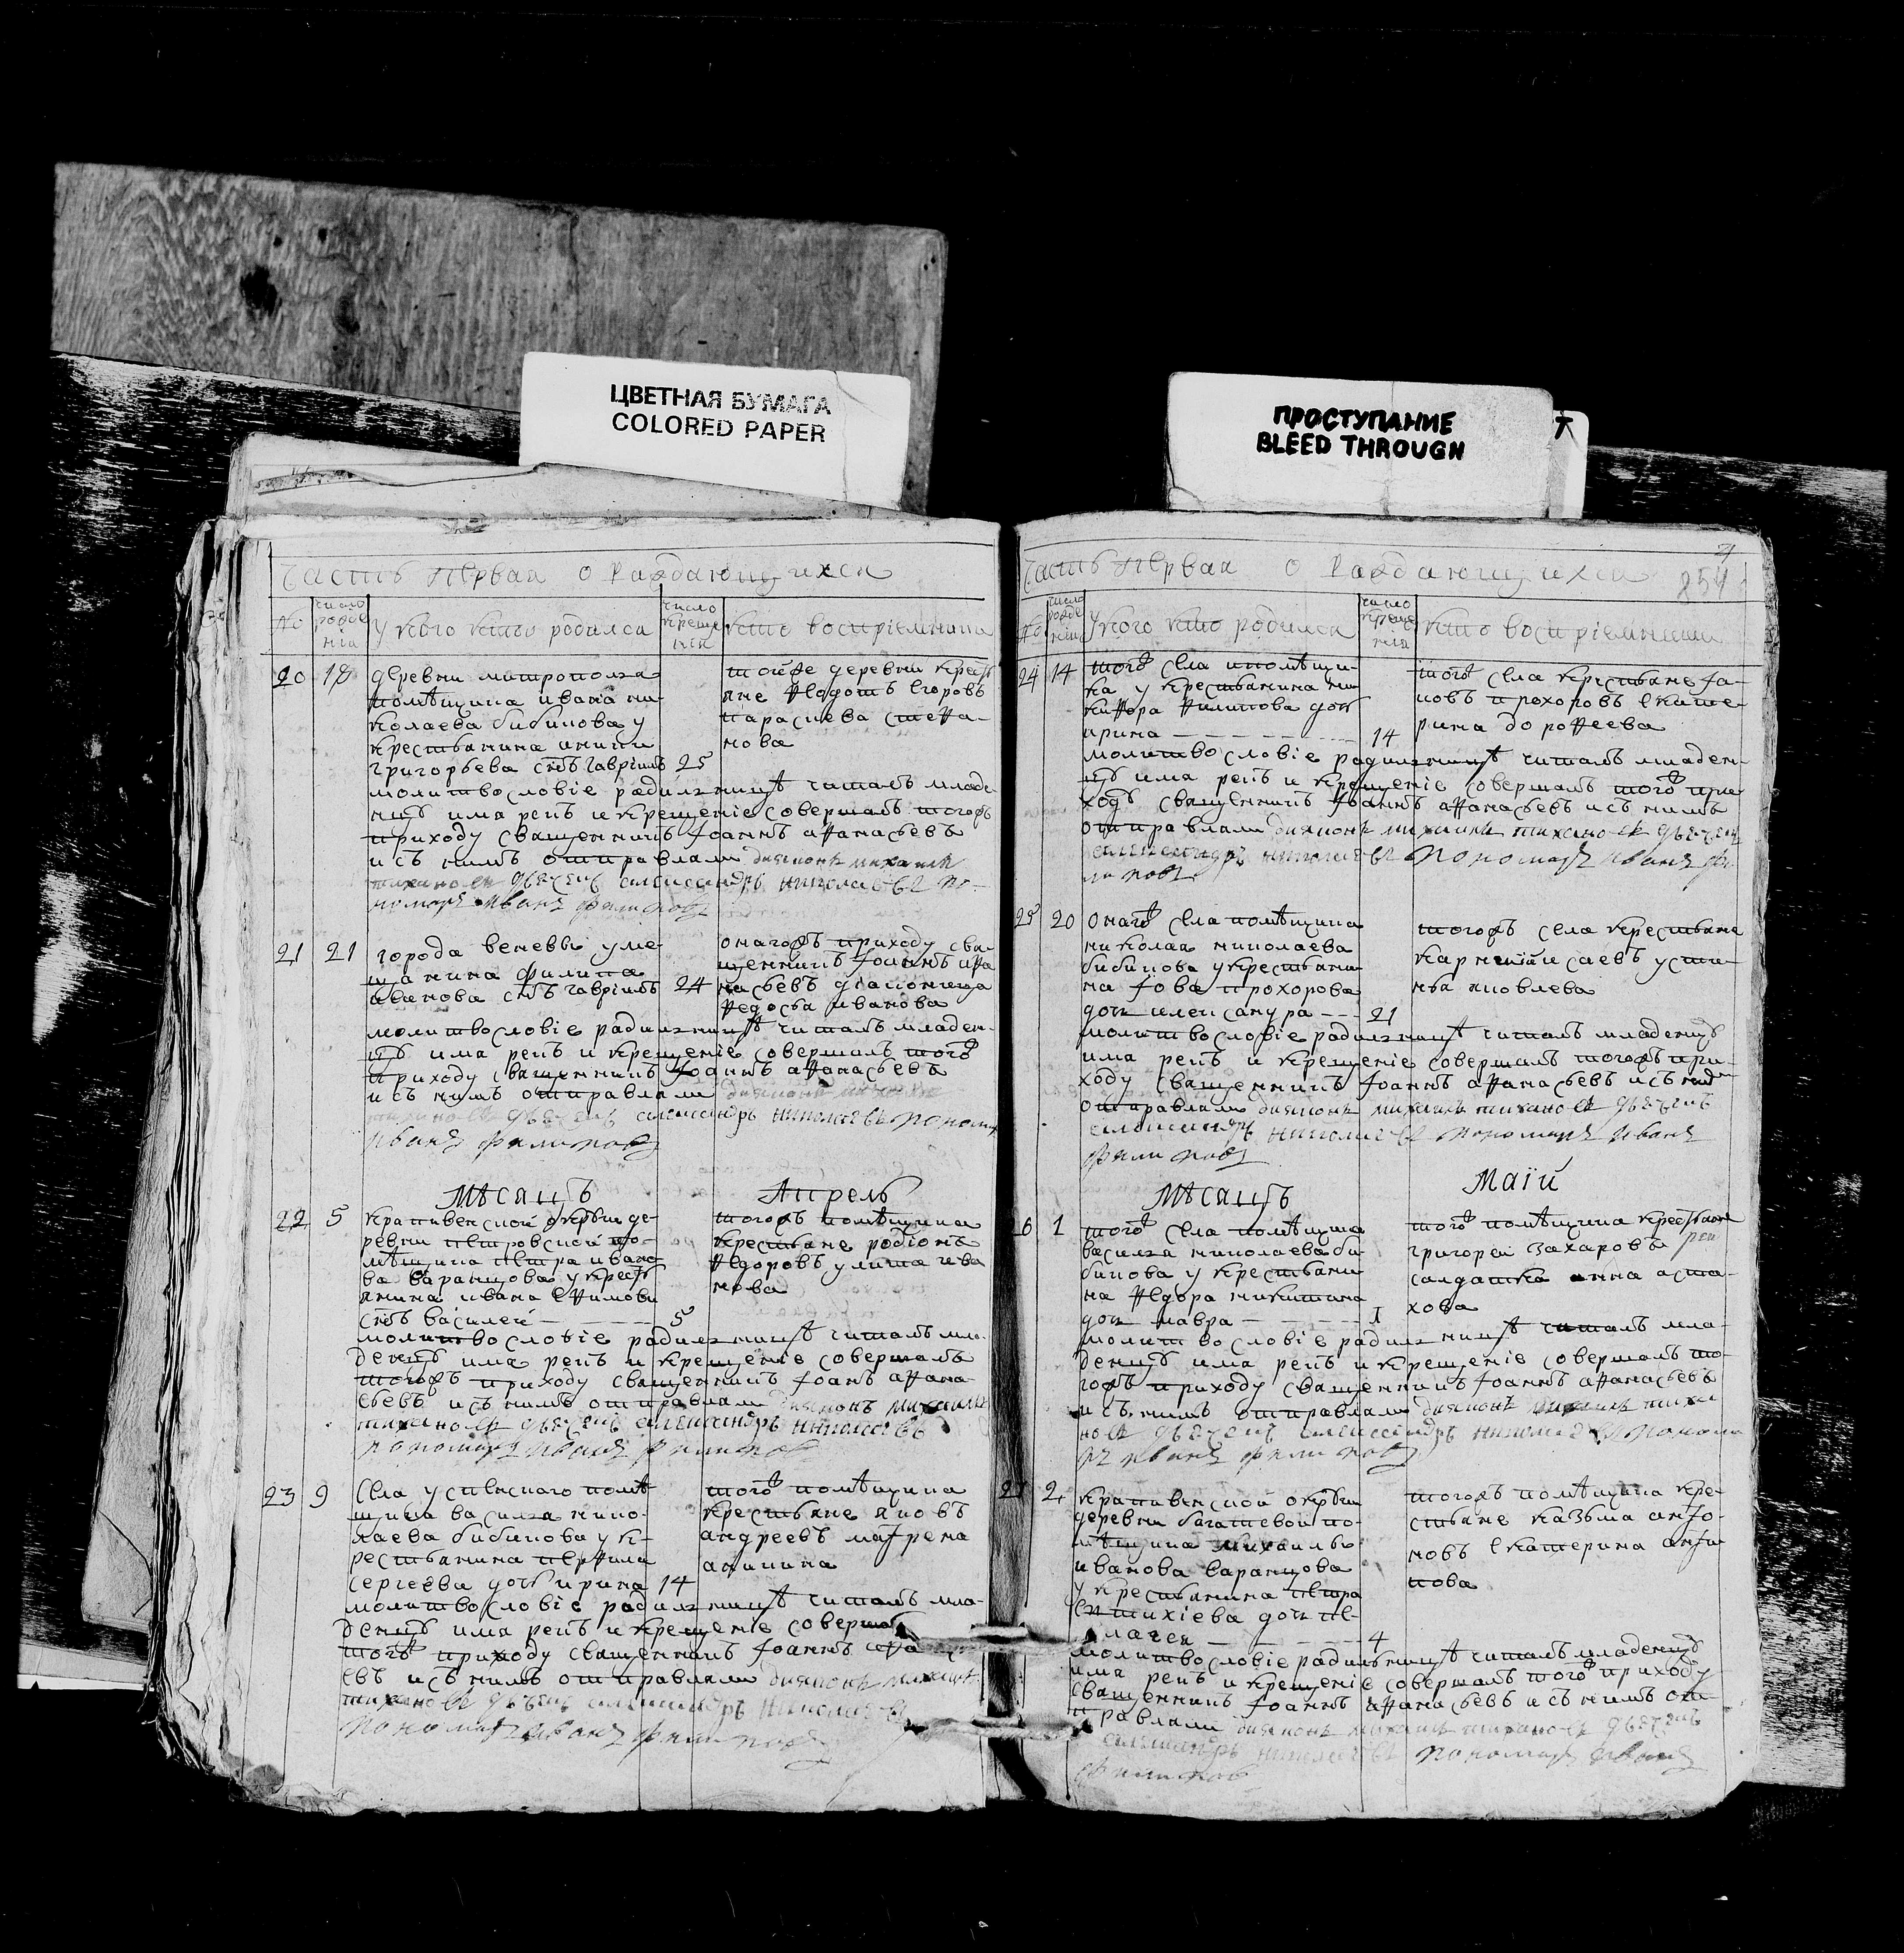 ЦВЕТНАЯ БУМАГА
COLORED PAPER
ПРОСТУПАНИЕ
BLEED THROUGH
Т
часть первая о раждающихся
№
число рожде нія
у кого кто родился
число креще нія
кто воспріемники
20 18
деревни митрополя
помѣщика ивана ни-
колаева бибикова у
крестьянина
григорьева снъ гавріилъ 25
тойже деревни крест
яне Ѳедотъ Егоровъ
параскева степа-
нова
молитвословіе радилницѣ читалъ младе-
нцу имя рекъ и крещеніе совершалъ тогожъ
приходу священникъ Іоаннъ аѲанасьевъ
исъ нимъ отправляли диаконъ михаилъ
тихановъ дьячекъ александръ николаевъ по-
номарь иванъ филиповъ
21 21
города веневы у ме-
щанина филипа
иванова снъ гавріилъ 24
онагожъ приходу свя-
щенникъ Іоаннъ аѲа
насьевъ діаконица
Ѳедосья иванова
молитвословіе радилницѣ читалъ младен-
цу имя рекъ и крещеніе совершалъ того
приходу священникъ Іоаннъ аѲанасьевъ
исъ нимъ отправляли диаконъ михаилъ
тихановъ дьячекъ александръ николаевъ поном
иванъ филиповъ
Мѣсяцъ Апрель
22 5
крапивенской округи де-
ревни петровской по-
мѣщика петра ивано-
ва варанцова у крест
янина ивана еѲимова
снъ василей 5
тогожъ помѣщика
крестьяне родіонъ
Ѳедоровъ улита ива
нова
молитвословіе радилницѣ читалъ мла-
денцу имя рекъ и крещеніе совершалъ
тогожъ приходу священникъ Іоанъ аѲана-
сьевъ исъ нимъ отправляли диаконъ михаилъ
тихановъ дьячекъ александръ николаевъ
пономарь иванъ филиповъ
23 9
села успенскаго помѣ
щика василя нико-
лаева бибикова у к-
рестьянина перѲила
сергеева дочь ирина 14
того помѣщика
крестьяне яковъ
андреевъ матрена
аникина
молитвословіе радилницѣ читалъ мла-
денцу имя рекъ и крещеніе совершалъ
того приходу священникъ Іоаннъ
евъ исъ нимъ отправляли диаконъ михаилъ
тихановъ дьячекъ александръ николаевъ
пономарь иванъ филиповъ
часть первая о раждающихся
854
№
число рожде нія
у кого кто родился
число креще нія
кто воспріемники
24 14
того села и помѣщи-
ка у крестьянина ни
киѲора Ѳилипова доч
ирина 14
того села крестьяне Іа-
ковъ прохоровъ екате-
рина дороѲеева
молитвословіе радилницѣ читалъ младен-
цу имя рекъ и крещеніе совершалъ того при
ходу священникъ Іоаннъ аѲанасьевъ исъ нимъ
отправляли диаконъ михаилъ тихановъ дьячекъ
александръ николаевъ пономарь иванъ фи
липовъ
25 20
онаго села помѣщика
николая николаева
бибикова у крестьяни
на Іова прохорова
доч александра 21
тогожъ села крестьяне
исаевъ усти-
нья яковлева
молитвословіе радилницѣ читалъ младенцу
имя рекъ и крещеніе совершалъ тогожъ при-
ходу священникъ Іоаннъ аѲанасьевъ исъ ним
отправляли диаконъ михаилъ тихановъ дьячекъ
александръ николаевъ пономарь иванъ
филиповъ
Мѣсяцъ Маій
26 1
того села помѣщика
василя николаева би-
бикова у крестьяни
на Ѳедора никитина
доч мавра 1
того помѣщика крестьяне
григорей захаровъ
салдатка анна аста-
хова
молитвословіе радилницѣ читалъ мла-
денцу имя рекъ и крещеніе совершалъ то-
гожъ приходу священникъ Іоаннъ аѲанасьевъ
исъ нимъ отправляли диаконъ михаилъ тиха
новъ дьячекъ александръ николаевъ понома
рь иванъ филиповъ
27 2
крапивенской округи
деревни багатевой по-
мѣщика михаилы
иванова варанцова
у крестьянина петра
евтихіева доч пе-
лагея 4
тогожъ помѣщика кре-
стьяне казьма
новъ екатерина
молитвословіе радильницѣ читалъ младенцу
имя рекъ и крещеніе совершалъ того приходу
священникъ Іоаннъ аѲанасьевъ исъ нимъ от-
правляли диаконъ михаилъ тихановъ дьячекъ
александръ николаевъ пономарь иванъ
филипов